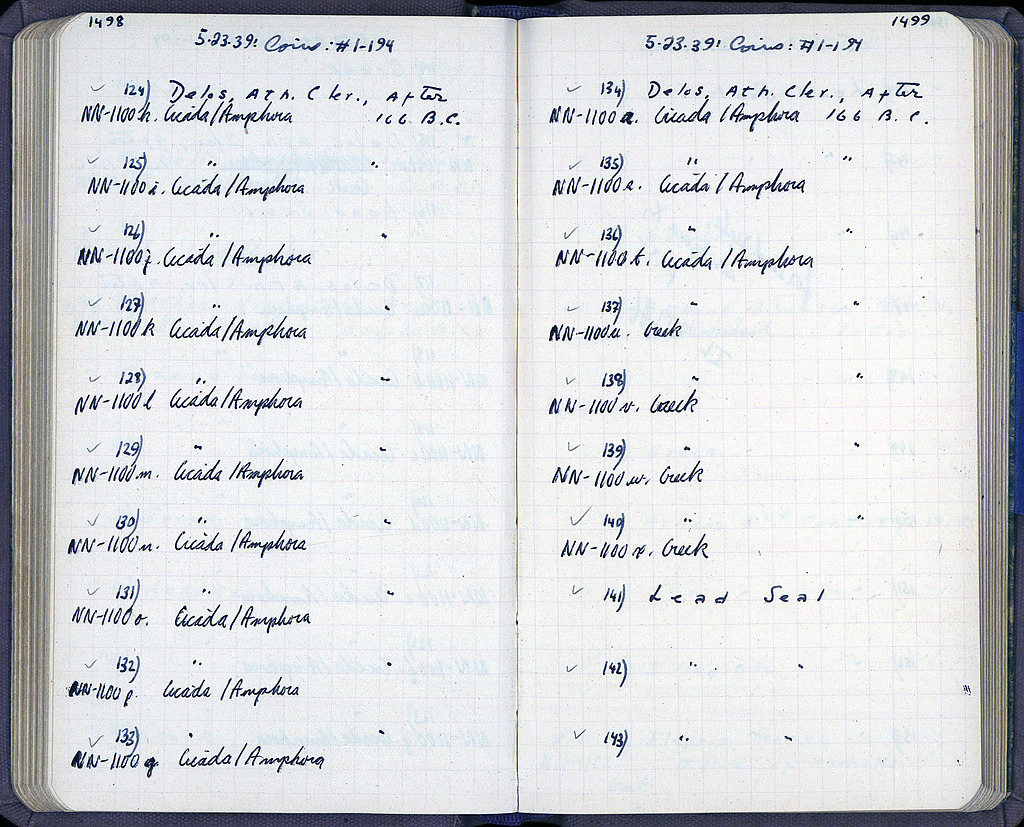 1498
5·23·39: Coins: #1-194
✓ 124) Delos, Ath. Cler., After
NN-1100 h. Cicada/Amphora 166 B.C.
✓ 125) " "
NN-1100 i. Cicada/Amphora
✓ 126) " "
NN-1100 j. Cicada/Amphora
✓ 127) " "
NN-1100 k Cicada/Amphora
✓ 128) " "
NN-1100 l Cicada/Amphora
✓ 129) " "
NN-1100 m. Cicada/Amphora
✓ 130) " "
NN-1100 n. Cicada/Amphora
✓ 131) " "
NN-1100 o. Cicada/Amphora
✓ 132) " "
NN-1100 p. Cicada/Amphora
✓ 133) " "
NN-1100 q. Cicada/Amphora
1499
5·23·39: Coins: #1-194
✓ 134) Delos, Ath. Cler., After
NN-1100 r. Cicada/Amphora 166 B.C.
✓ 135) " "
NN-1100 s. Cicada/Amphora
✓ 136) " "
NN-1100 t. Cicada/Amphora
✓ 137) " "
NN-1100 u. Greek
✓ 138) " "
NN-1100 v. Greek
✓ 139) " "
NN-1100 w. Greek
✓ 140) " "
NN-1100 x. Greek
✓ 141) Lead Seal
✓ 142) " "
✓ 143) " "